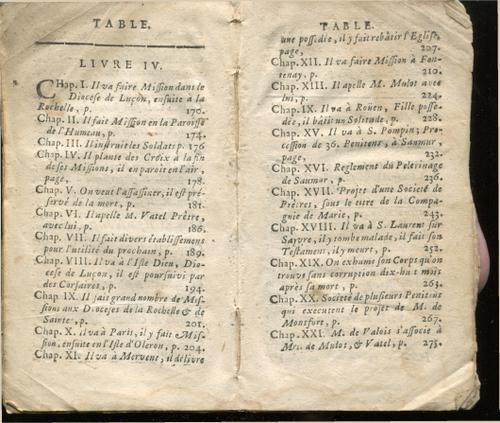 TABLE.
LIVRE IV.
CHap. I. Il va faire Mission dans le
Diocese de Luçon, ensuite à la
Rochelle, p. 170.
Chap. II. Il fait Mission en la Paroisse
de l'Humeau, p. 174.
Chap. III. Il instruit les Soldats p. 176
Chap. IV. Il plante des Croix à la fin
de ses Missions, il en paroit en l'air,
page, 178.
Chap. V. On veut l'assassiner, il est pré-
servé de la mort, p. 181.
Chap. VI. Il apelle M. Vatel Prêtre,
avec lui, p. 186.
Chap. VII. Il fait divers établissement
pour l'utilité du prochain, p. 189.
Chap. VIII. Il va à l'Isle Dieu, Dio-
cese de Luçon, il est poursuivi par
des Corsaires, p. 194.
Chap. IX. Il fait grand nombre de Mis-
sions aux Dioceses de la Rochelle & de
Sainte, p. 201.
Chap. X. Il va à Paris, il y fait Mis-
sion, ensuite en l'Isle d'Oleron, p. 204.
Chap. XI. Il va à Mervent, il délivre
TABLE.
une possedie, il y fait rebâtir l'Eglise,
page, 207.
Chap. XII. Il va faire Mission à Fon-
tenay, p. 210.
Chap. XIII. Il apelle M. Mulot avec
lui, p. 224.
Chap. IX. Il va à Roüen, Fille posse-
dée, il bâtit un Solitude, p. 228.
Chap. XV. Il va à S. Pompin; Pro-
cession de 36. Penitens, à Saumur,
page, 232.
Chap. XVI. Reglement du Pelerinage
de Saumur, p. 236.
Chap. XVII. Projet d'une Societé de
Prêtres, sous le titre de la Compa-
gnie de Marie, p. 243.
Chap. XVIII. Il va à S. Laurent sur
Sayvre, il y tombe malade, il fait son
Testament, il y meurt, p. 252.
Chap. XIX. On exhume son Corps qu'on
trouve sans corruption dix-huit mois
après sa mort, p. 263.
Chap. XX. Societé de plusieurs Penitent
qui executent le projet de M. de
Montfort, p. 267.
Chap. XXI. M. de Valois s'associe à
Mrs. de Mulot, & Vatel, p. 275.